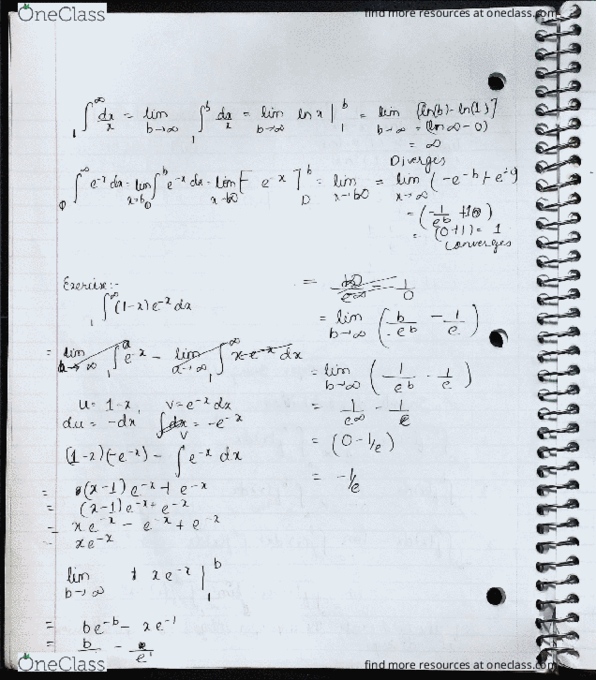 OneClass
find more resources at oneclass.com
₁∫^∞ dx/x = lim b→∞ ₁∫^b dx/x = lim b→∞ ln x |₁^b = lim b→∞ (ln(b) - ln(1)]
= (ln ∞ - 0)
= ∞
Diverges
₀∫^∞ e^-x dx = lim ₀∫^b e^-x dx = lim [- e^-x ]₀^b = lim = lim x→∞ (-e^-b + e^-0)
= (-1/e^b + 1)
= (0+1) = 1
Converges
Exercise:-
₁∫^∞ (1-x) e^-x dx
= lim a→∞ ₁∫^a e^-x - lim a→∞ ₁∫^∞ x-e^-x dx
u = 1-x, v = e^-x dx
du = -dx ∫dx v = -e^-x
(1-x)(-e^-x) - ∫ e^-x dx
= (x-1) e^-x + e^-x
= (x-1) e^-x + e^-x
= x e^-x - e^-x + e^-x
x e^-x
lim b→∞ + x e^-x |₁^b
= b e^-b - x e^-1
= b - /e^1
= ∞/e^∞ = 1/0
= lim b→∞ (b/e^b - 1/e)
= lim b→∞ (1/e^b - 1/e)
= 1/e^∞ - 1/e
= (0 - 1/e)
= -1/e
OneClass
find more resources at oneclass.com